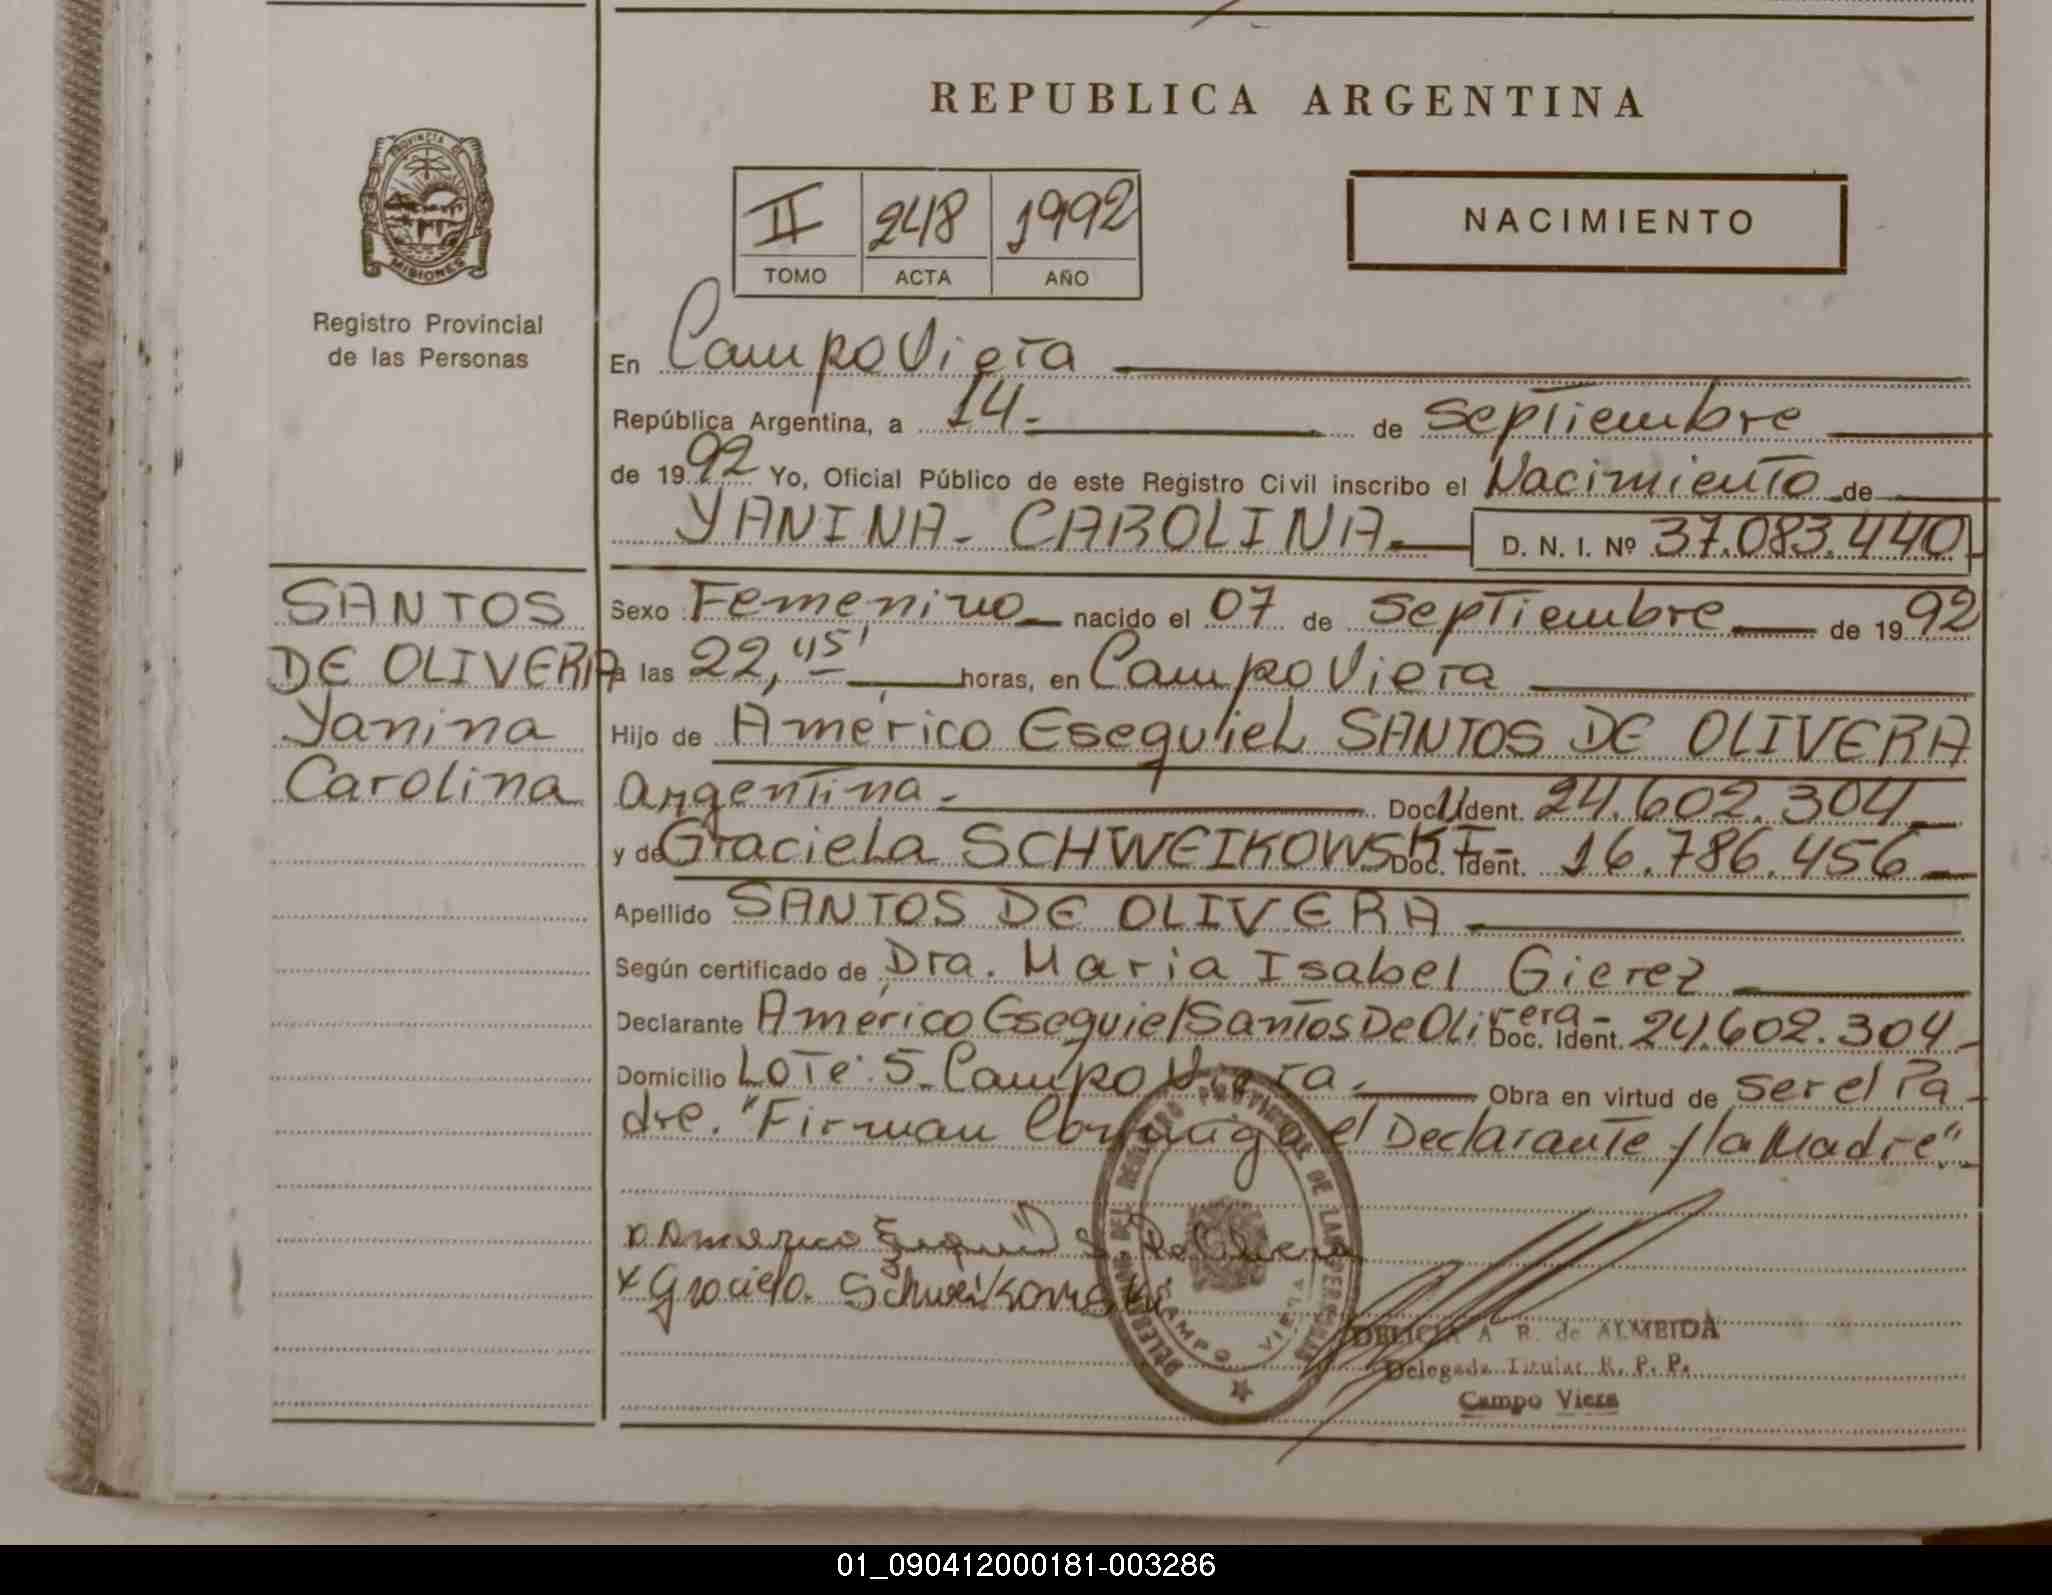 REPUBLICA ARGENTINA
PROVINCIA DE
MISIONES
Registro Provincial
de las Personas
II 248 1992
TOMO ACTA AÑO
NACIMIENTO
En Campo Viera
República Argentina, a 14.- de Septiembre
de 1992 Yo, Oficial Público de este Registro Civil inscribo el Nacimiento de
YANINA- CAROLINA.- D. N. I. Nº 37.083.440
SANTOS
DE OLIVERA
Yanina
Carolina
Sexo Femenino nacido el 07 de Septiembre de 1992
a las 22,45' horas, en Campo Viera
Hijo de Américo Esequiel SANTOS DE OLIVERA
Argentina.- Doc. Ident. 24.602.304
y de Graciela SCHWEIKOWSKI- Doc. Ident. 16.786.456
Apellido SANTOS DE OLIVERA
Según certificado de Dra. Maria Isabel Gierez
Declarante Américo Esequiel Santos De Olivera- Doc. Ident. 24.602.304
Domicilio Lote: 5- Campo Viera. Obra en virtud de ser el Pa-
dre. "Firman Conmigo el Declarante y la Madre".
x Americo Esequiel S. De Olivera
x Graciela Schweikowski
DELEGACION DEL REGISTRO PROVINCIAL DE LAS PERSONAS
CAMPO VIERA
DELICIA A. R. de ALMEIDA
Delegada Titular R. P. P.
Campo Viera
01_090412000181-003286